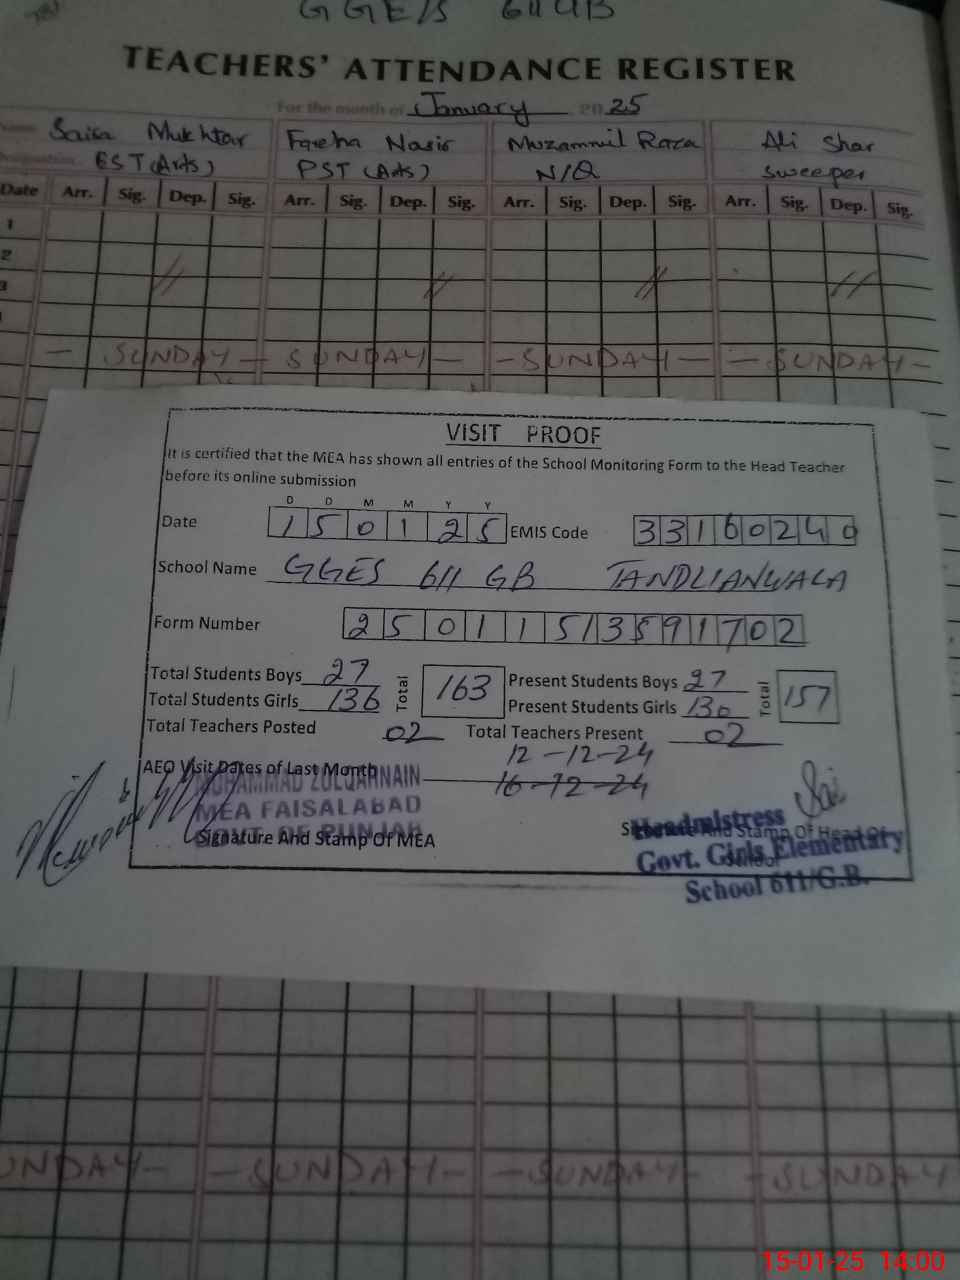 GGE/S 611 GB
TEACHERS' ATTENDANCE REGISTER
For the month of January 2025
Name Saira Mukhtar Fareha Nasir Muzammil Raza Ali Shar
Designation EST (Arts) PST (Arts) N/Q Sweeper
Date Arr. Sig. Dep. Sig. Arr. Sig. Dep. Sig. Arr. Sig. Dep. Sig. Arr. Sig. Dep. Sig.
1
2
3
- SUNDAY - SUNDAY - - SUNDAY - - SUNDAY -
VISIT PROOF
It is certified that the MEA has shown all entries of the School Monitoring Form to the Head Teacher
before its online submission
D D M M Y Y
Date 15 01 25 EMIS Code 33160240
School Name GGES 611 GB TANDLIANWALA
Form Number 25011513591702
Total Students Boys 27 Total 163 Present Students Boys 27 Total 157
Total Students Girls 136 Present Students Girls 130
Total Teachers Posted 02 Total Teachers Present 02
AEO Visit Dates of Last Month 12-12-24
16-12-24
MUHAMMAD ZULQARNAIN
MEA FAISALABAD
GOVT OF PUNJAB
Signature And Stamp Of MEA
Signature And Stamp Of Head Of
School
Headmistress
Govt. Girls Elementary
School 611/G.B.
SUNDAY- -SUNDAY- -SUNDAY- -SUNDAY-
15-01-25 14:00